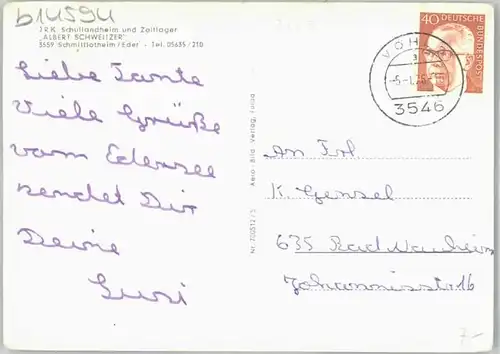 b14594
JRK Schullandheim und Zeltlager
"ALBERT SCHWEITZER"
3559 Schmittlotheim/Eder · Tel. 05635/210
Liebe Tante
Viele Grüße
vom Edersee
sendet Dir
Deine
Susi
Nr. 700512/5 Aero-Bild-Verlag, Fulda
40 DEUTSCHE BUNDESPOST
VÖHL
a
3546
An Frl.
K. Gensel
635 Bad Nauheim
Johannisstr. 16
7-